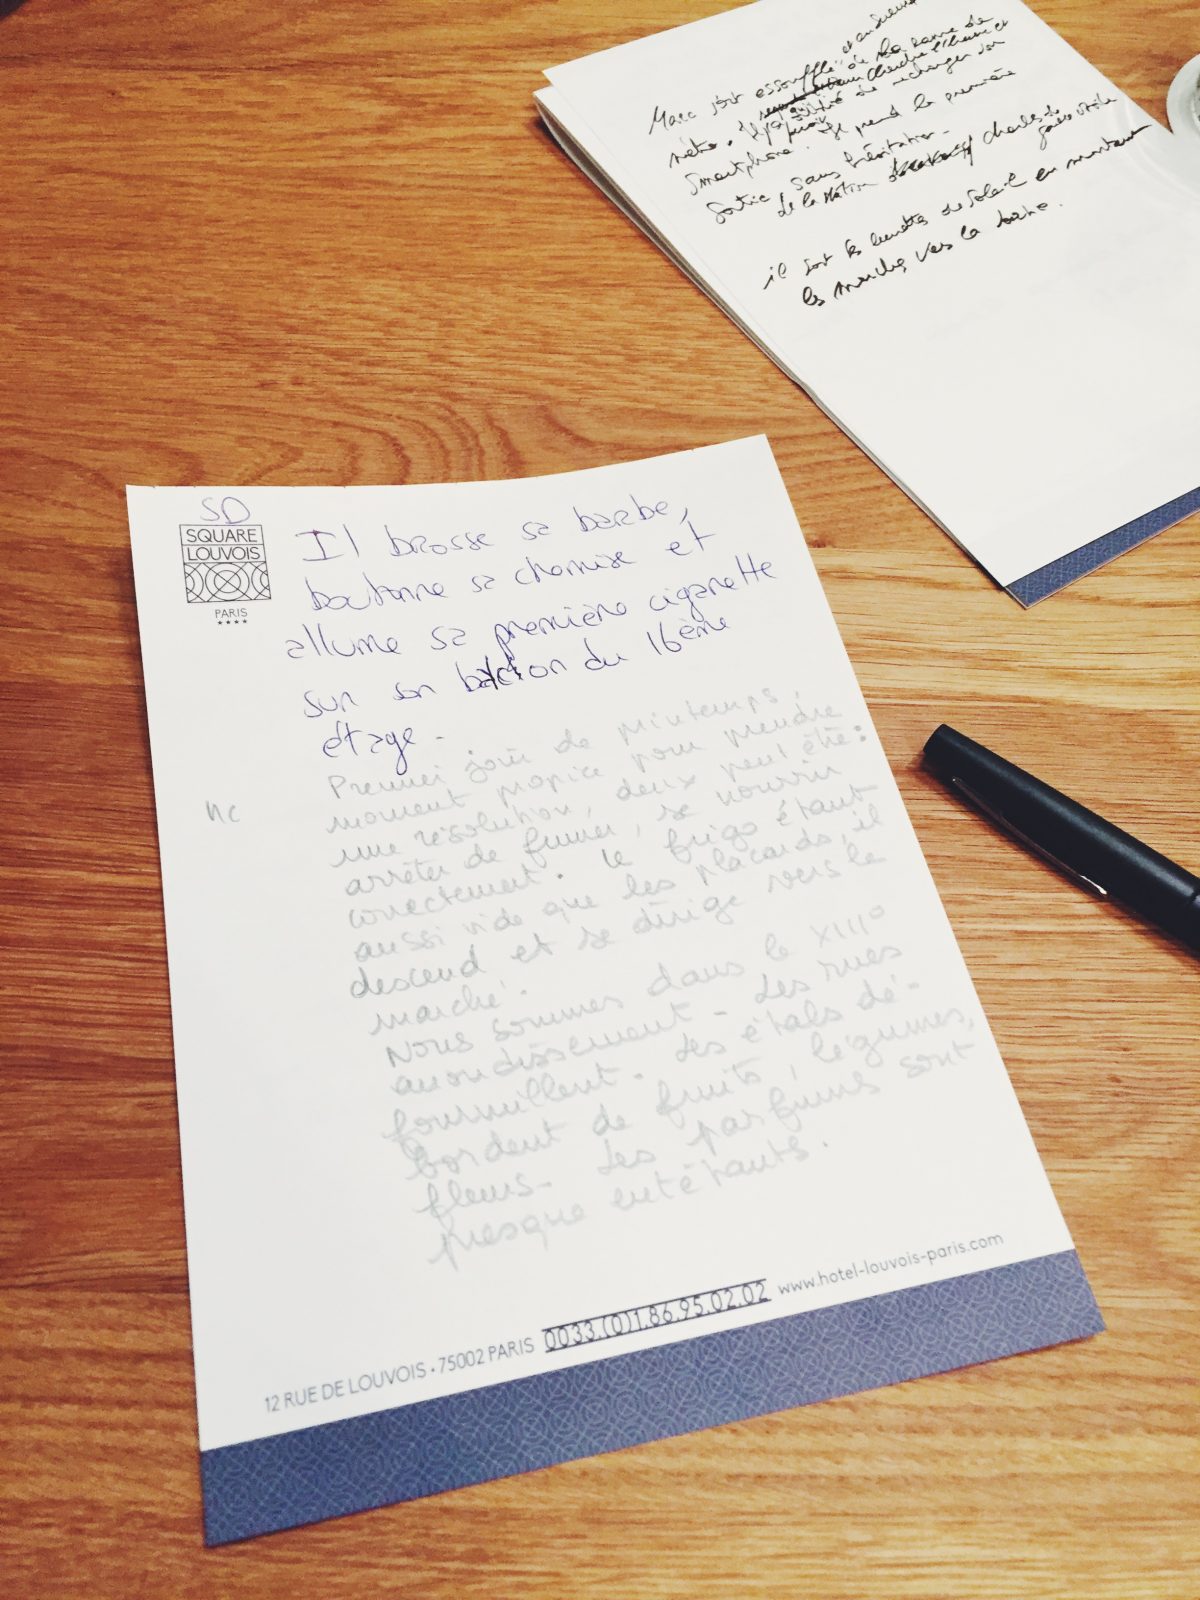 Marc sort essoufflé et en sueur
de la rame de
métro. Il
Smartphone. Il prend la première
Sortie, sans hésitation.
de la station Charles de
Gaulle étoile
il sort les lunettes de soleil en montant
les marches vers la
SD
SQUARE
LOUVOIS
PARIS
Il brosse sa barbe,
boutonne sa chemise et
allume sa première cigarette
sur son balcon du 16ème
étage.
nc
Premier jour de printemps,
moment propice pour prendre
une résolution, deux peut être :
arrêter de fumer, se nourrir
correctement. le frigo étant
aussi vide que les placards, il
descend et se dirige vers le
marché.
Nous sommes dans le XIII°
arrondissement. Les rues
fourmillent. Les étals dé-
bordent de fruits, légumes,
fleurs. Les parfums sont
presque entêtants.
12 RUE DE LOUVOIS • 75002 PARIS 0033.(0)1.86.95.02.02 www.hotel-louvois-paris.com